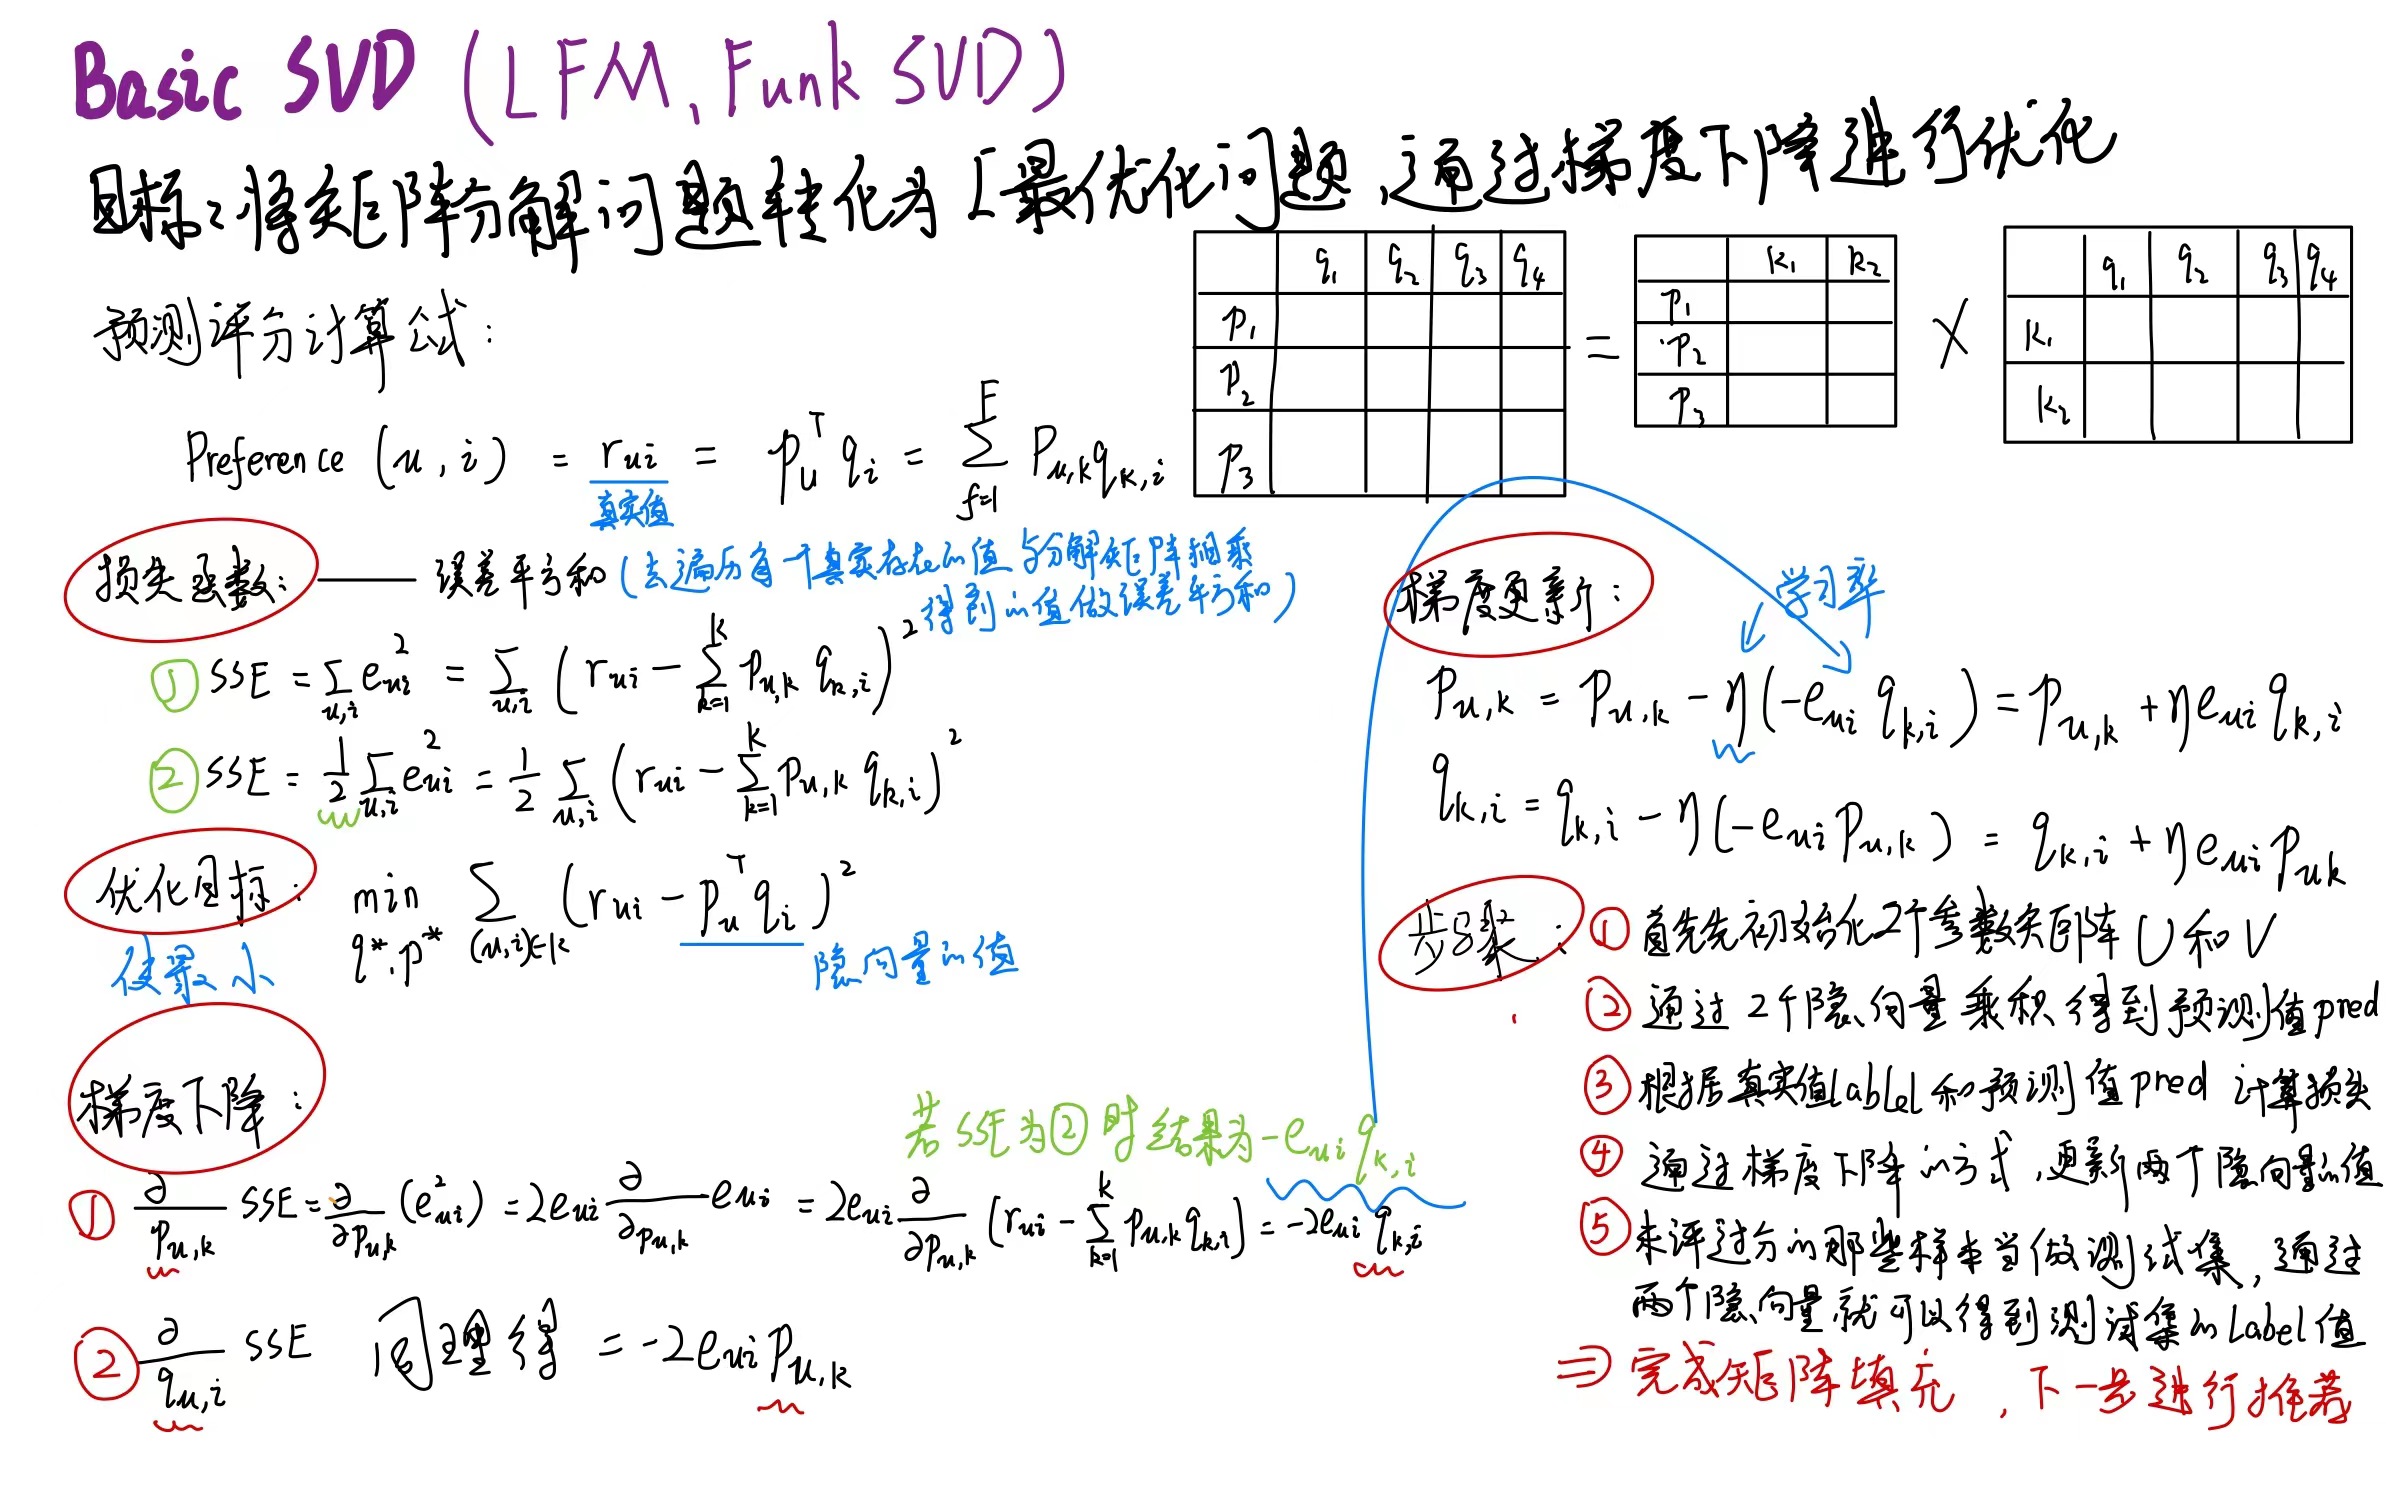 Basic SVD (LFM, Funk SVD)
目标：将矩阵分解问题转化为[最优化问]题，通过梯度下降进行优化
q₁ q₂ q₃ q₄
p₁
p₂
p₃
=
k₁ k₂
p₁
p₂
p₃
×
q₁ q₂ q₃ q₄
k₁
k₂
预测评分计算公式：
Preference (u, i) = r_{ui} = p_u^T q_i = ∑_{f=1}^{F} P_{u,k} q_{k,i}
真实值
损失函数： —— 误差平方和 (去遍历每一个真实存在的值与分解矩阵相乘
得到的值做误差平方和)
① SSE = ∑_{u,i} e_{ui}^2 = ∑_{u,i} (r_{ui} - ∑_{k=1}^{k} p_{u,k} q_{k,i})^2
② SSE = 1/2 ∑_{u,i} e_{ui}^2 = 1/2 ∑_{u,i} (r_{ui} - ∑_{k=1}^{k} p_{u,k} q_{k,i})^2
优化目标： min_{q*,p*} ∑_{(u,i)∈k} (r_{ui} - p_u^T q_i)^2
使最小
隐向量的值
梯度下降：
若SSE为②时结果为 -e_{ui} q_{k,i}
① ∂/p_{u,k} SSE = ∂/∂p_{u,k} (e_{ui}^2) = 2e_{ui} ∂/∂p_{u,k} e_{ui} = 2e_{ui} ∂/∂p_{u,k} (r_{ui} - ∑_{k=1}^{k} p_{u,k} q_{k,i}) = -2e_{ui} q_{k,i}
② ∂/q_{u,i} SSE 同理得 = -2e_{ui} p_{u,k}
梯度更新：
学习率
p_{u,k} = p_{u,k} - η(-e_{ui} q_{k,i}) = p_{u,k} + ηe_{ui} q_{k,i}
q_{k,i} = q_{k,i} - η(-e_{ui} p_{u,k}) = q_{k,i} + ηe_{ui} p_{uk}
步骤： ① 首先先初始化2个参数矩阵 U和V
② 通过2个隐向量乘积得到预测值pred
③ 根据真实值Lablel和预测值pred 计算损失
④ 通过梯度下降的方式，更新两个隐向量的值
⑤ 未评过分的那些样本当做测试集，通过
两个隐向量就可以得到测试集的Label值
⇒ 完成矩阵填充，下一步进行推荐